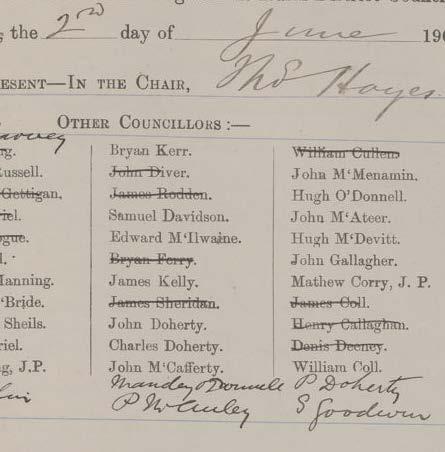 the 2nd day of June 190
ESENT—IN THE CHAIR, Thos Hayes
OTHER COUNCILLORS :—
rg.
Russell.
Gettigan,
riel.
ogue.
l.
Manning.
‘Bride.
Sheils.
riel.
g, J.P.
Bryan Kerr.
John Diver.
James Rodden.
Samuel Davidson.
Edward M‘Ilwaine.
Bryan Ferry.
James Kelly.
James Sheridan.
John Doherty.
Charles Doherty.
John M‘Cafferty.
Manday O'Donnell
P McCauley
William Cullen.
John M‘Menamin.
Hugh O’Donnell.
John M‘Ateer.
Hugh M‘Devitt.
John Gallagher.
Mathew Corry, J. P.
James Coll.
Henry Callaghan.
Denis Deeney.
William Coll.
P Doherty
S Goodwin